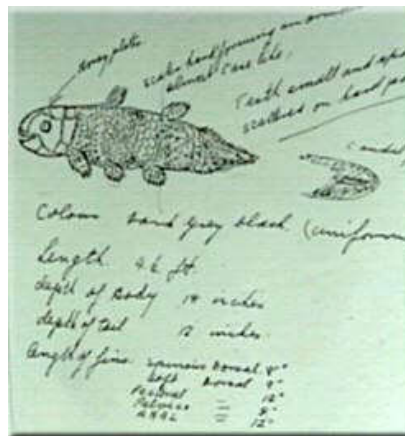 bony plate
scales hard forming an
almost case like.
Teeth small and
scattered on hard
Colour hard grey black (uniform
Length 4½ ft
depth of Body 18 inches
depth of tail 12 inches
length of fins Spinous Dorsal 8"
Soft Dorsal 9"
Pectoral = 12"
Pelvics = 8"
ANAL = 12"